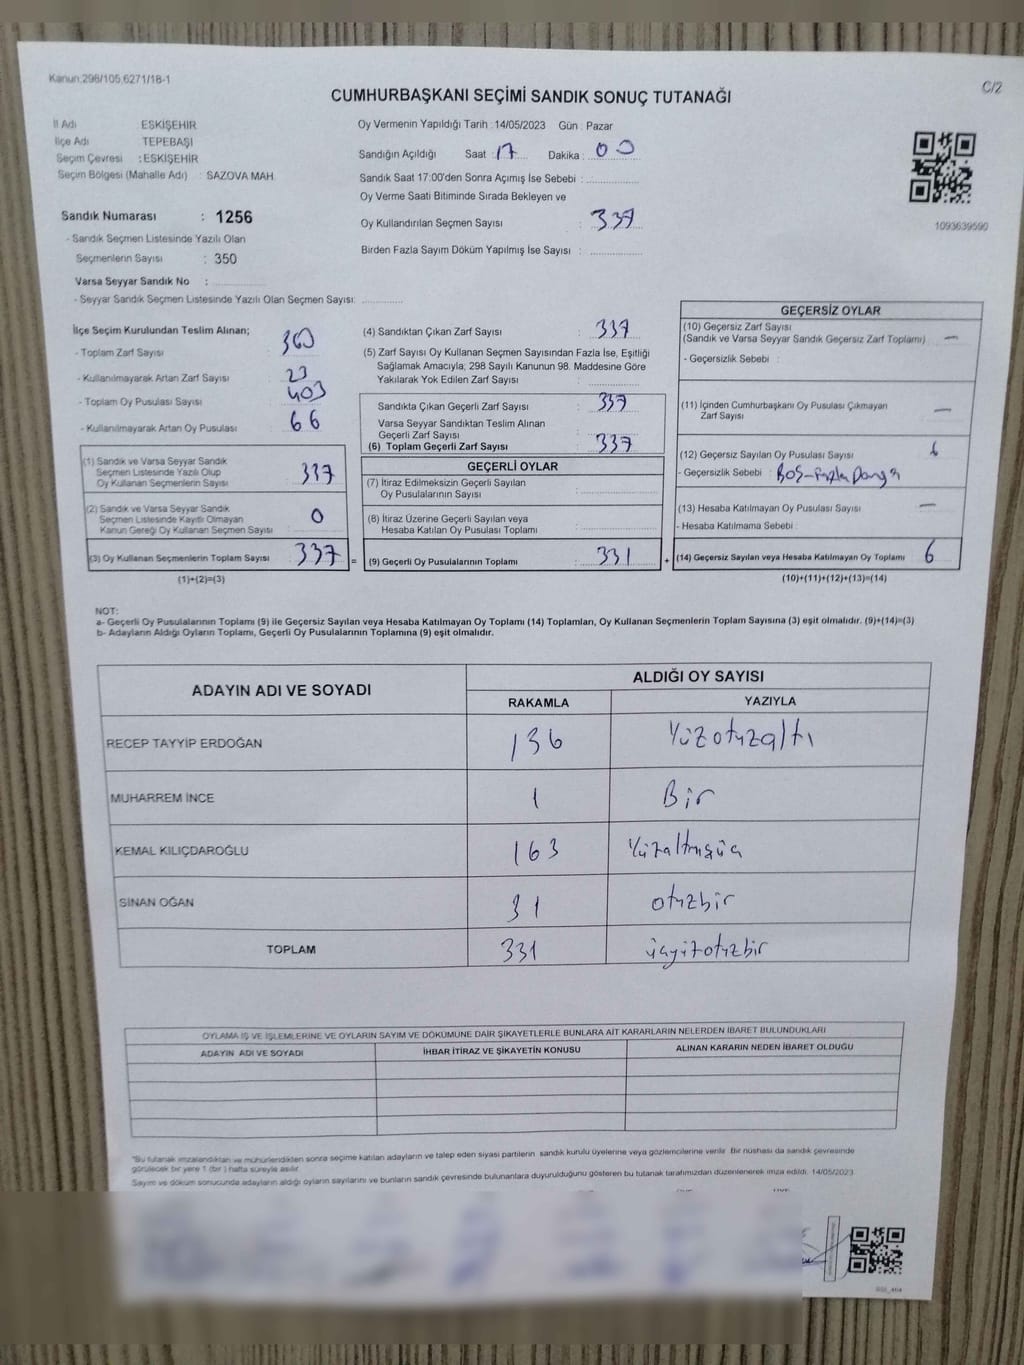 Kanun:298/105,6271/18-1
C/2
CUMHURBAŞKANI SEÇİMİ SANDIK SONUÇ TUTANAĞI
İl Adı ESKİŞEHİR
İlçe Adı TEPEBAŞI
Seçim Çevresi : ESKİŞEHİR
Seçim Bölgesi (Mahalle Adı) : SAZOVA MAH.
Sandık Numarası : 1256
- Sandık Seçmen Listesinde Yazılı Olan
Seçmenlerin Sayısı : 350
Varsa Seyyar Sandık No :
- Seyyar Sandık Seçmen Listesinde Yazılı Olan Seçmen Sayısı:
Oy Vermenin Yapıldığı Tarih : 14/05/2023 Gün : Pazar
Sandığın Açıldığı Saat : 17 Dakika : 00
Sandık Saat 17:00'den Sonra Açımış İse Sebebi :
Oy Verme Saati Bitiminde Sırada Bekleyen ve
Oy Kullandırılan Seçmen Sayısı : 337
Birden Fazla Sayım Döküm Yapılmış İse Sayısı :
1093639590
İlçe Seçim Kurulundan Teslim Alınan;
- Toplam Zarf Sayısı : 360
- Kullanılmayarak Artan Zarf Sayısı : 23
- Toplam Oy Pusulası Sayısı : 403
- Kullanılmayarak Artan Oy Pusulası : 66
(1) Sandık ve Varsa Seyyar Sandık
Seçmen Listesinde Yazılı Olup
Oy Kullanan Seçmenlerin Sayısı : 337
(2) Sandık ve Varsa Seyyar Sandık
Seçmen Listesinde Kayıtlı Olmayan
Kanun Gereği Oy Kullanan Seçmen Sayısı : 0
(3) Oy Kullanan Seçmenlerin Toplam Sayısı : 337
(1)+(2)=(3)
(4) Sandıktan Çıkan Zarf Sayısı : 337
(5) Zarf Sayısı Oy Kullanan Seçmen Sayısından Fazla İse, Eşitliği
Sağlamak Amacıyla; 298 Sayılı Kanunun 98. Maddesine Göre
Yakılarak Yok Edilen Zarf Sayısı :
Sandıkta Çıkan Geçerli Zarf Sayısı : 337
Varsa Seyyar Sandıktan Teslim Alınan
Geçerli Zarf Sayısı :
(6) Toplam Geçerli Zarf Sayısı : 337
GEÇERLİ OYLAR
(7) İtiraz Edilmeksizin Geçerli Sayılan
Oy Pusulalarının Sayısı :
(8) İtiraz Üzerine Geçerli Sayılan veya
Hesaba Katılan Oy Pusulası Toplamı :
= (9) Geçerli Oy Pusulalarının Toplamı : 331 +
GEÇERSİZ OYLAR
(10) Geçersiz Zarf Sayısı
(Sandık ve Varsa Seyyar Sandık Geçersiz Zarf Toplamı) : —
- Geçersizlik Sebebi :
(11) İçinden Cumhurbaşkanı Oy Pusulası Çıkmayan
Zarf Sayısı : —
(12) Geçersiz Sayılan Oy Pusulası Sayısı : 6
- Geçersizlik Sebebi : Boş-Fazla Damga
(13) Hesaba Katılmayan Oy Pusulası Sayısı : —
- Hesaba Katılmama Sebebi :
(14) Geçersiz Sayılan veya Hesaba Katılmayan Oy Toplamı : 6
(10)+(11)+(12)+(13)=(14)
NOT:
a- Geçerli Oy Pusulalarının Toplamı (9) ile Geçersiz Sayılan veya Hesaba Katılmayan Oy Toplamı (14) Toplamları, Oy Kullanan Seçmenlerin Toplam Sayısına (3) eşit olmalıdır. (9)+(14)=(3)
b- Adayların Aldığı Oyların Toplamı, Geçerli Oy Pusulalarının Toplamına (9) eşit olmalıdır.
ADAYIN ADI VE SOYADI ALDIĞI OY SAYISI
RAKAMLA YAZIYLA
RECEP TAYYİP ERDOĞAN 136 Yüzotuzaltı
MUHARREM İNCE 1 Bir
KEMAL KILIÇDAROĞLU 163 Yüzaltmışüç
SİNAN OĞAN 31 otuzbir
TOPLAM 331 üçyüzotuzbir
OYLAMA İŞ VE İŞLEMLERİNE VE OYLARIN SAYIM VE DÖKÜMÜNE DAİR ŞİKAYETLERLE BUNLARA AİT KARARLARIN NELERDEN İBARET BULUNDUKLARI
ADAYIN ADI VE SOYADI İHBAR İTİRAZ VE ŞİKAYETİN KONUSU ALINAN KARARIN NEDEN İBARET OLDUĞU
"Bu tutanak imzalandıktan ve mühürlendikten sonra seçime katılan adayların ve talep eden siyasi partilerin sandık kurulu üyelerine veya gözlemcilerine verilir. Bir nüshası da sandık çevresinde
görülecek bir yere 1 (bir ) hafta süreyle asılır.
Sayım ve döküm sonucunda adayların aldığı oyların sayılarını ve bunların sandık çevresinde bulunanlara duyurulduğunu gösteren bu tutanak tarafımızdan düzenlenerek imza edildi. 14/05/2023